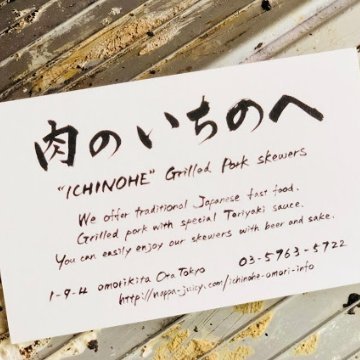 肉のいちのへ
"ICHINOHE" Grilled Pork skewers
We offer traditional Japanese fast food.
Grilled pork with special Teriyaki sauce.
You can easily enjoy our skewers with beer and sake.
1-9-4 omorikita Ota Tokyo 03-5963-5722
http://nappa-juicy.com/ichinohe-omori-info